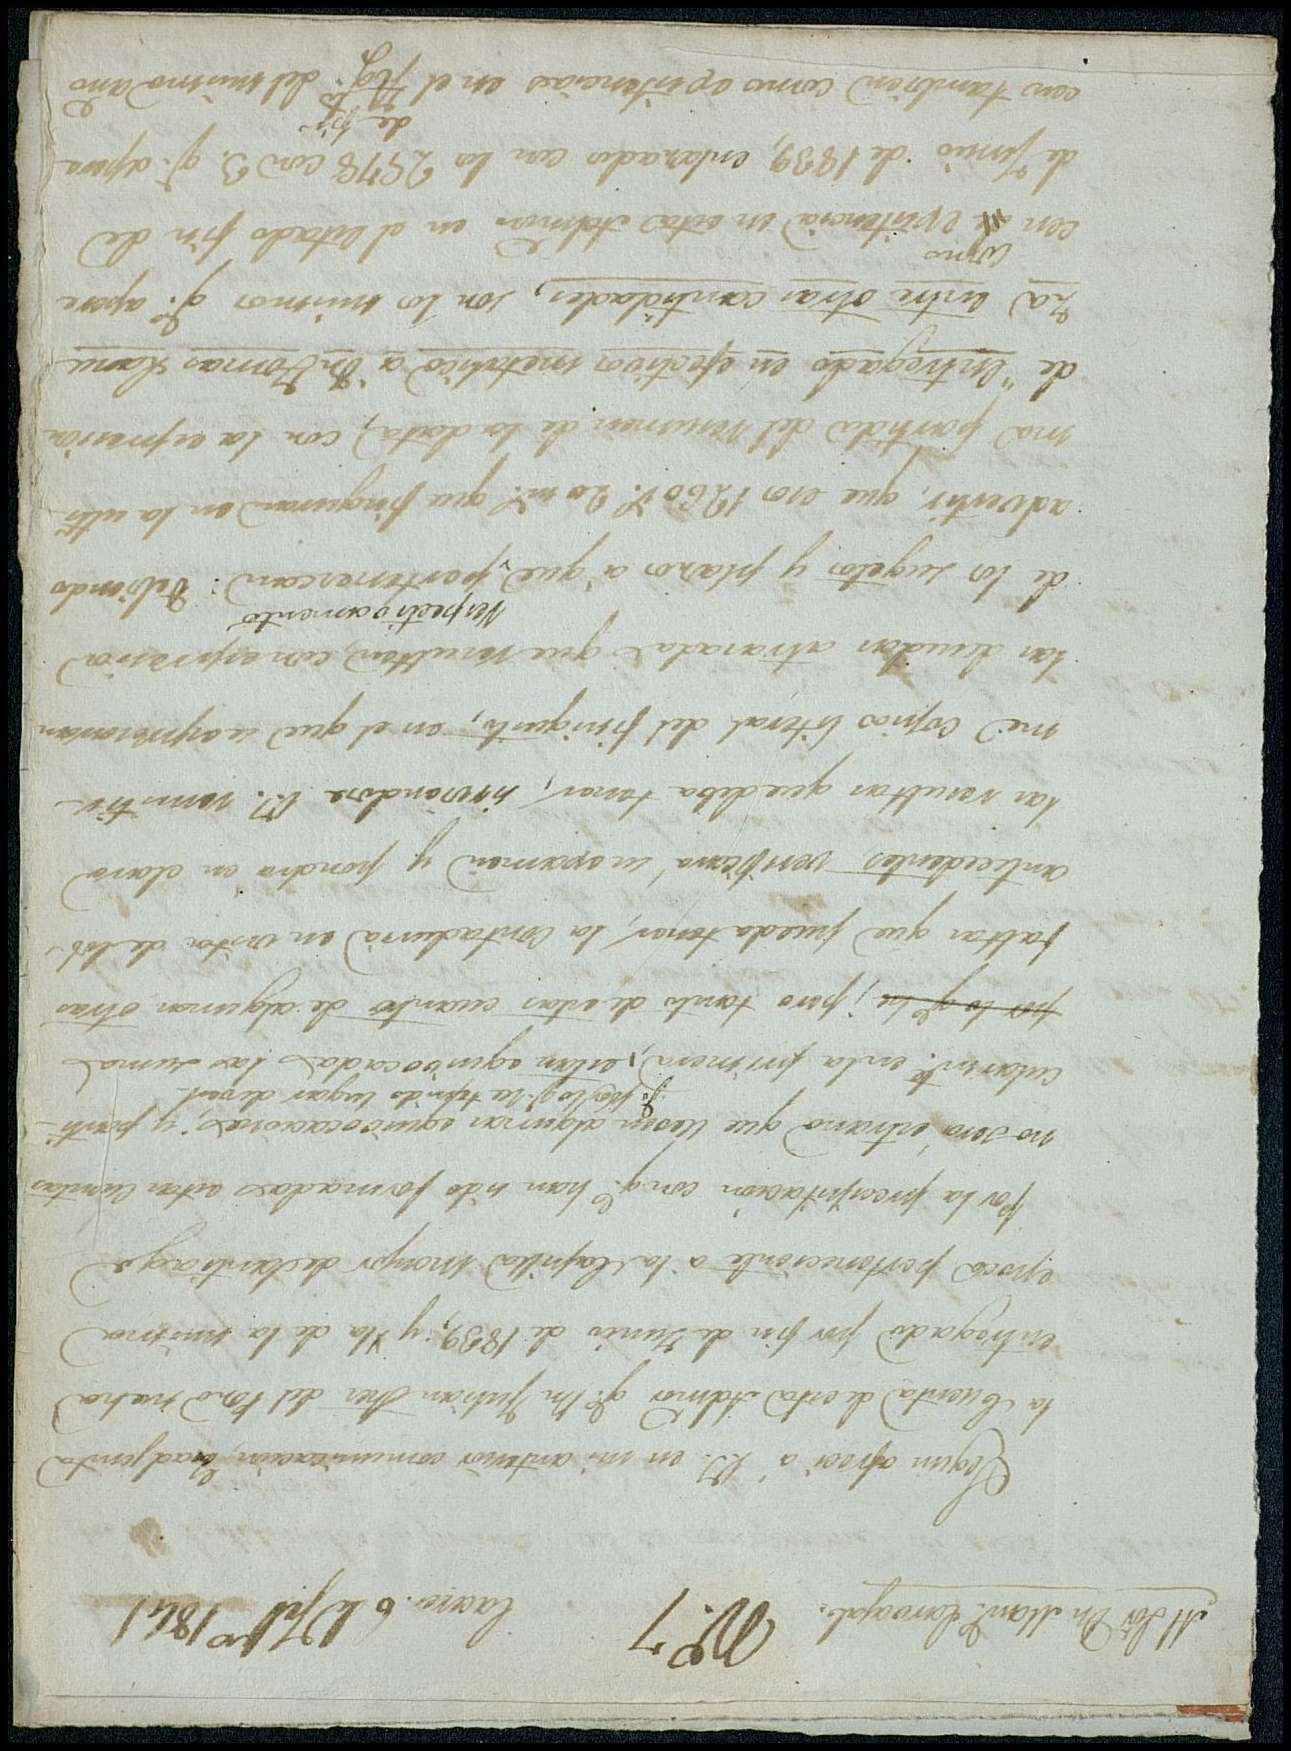 Al Sor. Dn. Manl. Carvajal.
Nº. 7
Cacers. 6 de 7bre 1841
Segun ofreci á V. en mi anterior comunicacion, es adjunta
la cuenta de esta Admon qe. Dn Julian del Toro habia
entregado por fin de Junio de 1839, y la de la misma
epoca perteneciente a la Capilla mayor de Santiago
Por la precipitacion con qe. han sido formadas estas cuentas
no será estraño que lleven algunas equivocaciones, y parti-
cularmte. en la primera, estan equivocadas las sumas
por lo qe. la ; pero tanto de estas cuanto de algunas otras
faltas que pueda tener, la Contaduria en vista de los
antecedentes verificara su examen y pondra en claro
las resultas que deba tener, sirviendose V. remitir-
me copia literal del finiquito, en el que se espresaran
las deudas atrasadas que resulten, con espresion
respectivamente
de los sugetos y plazos á que pertenezcan: Debiendo
advertir, que esos 1260 r. 20 ms. que figuran en la ulti-
ma partida del resumen de la data, con la espresion
de "Entregado en efectivo metalico a Dn. Tomas
entre otras cantidades, son los mismos qe. apare-
como
cen existencia en esta Admon en el estado fin de
de Junio de 1839, enterados con los 2978 con 3. qe. apare
cen tambien como existencias en el del mismo año